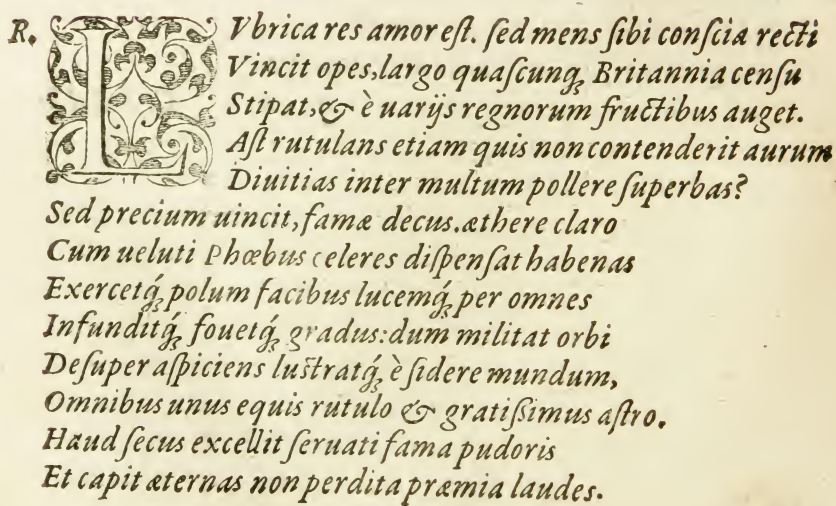 R. LVbrica res amor est. sed mens sibi conscia recti
Vincit opes, largo quascunq; Britannia censu
Stipat, & è uarijs regnorum fructibus auget.
Ast rutulans etiam quis non contenderit aurum
Diuitias inter multum pollere superbas?
Sed precium uincit, famæ decus. æthere claro
Cum ueluti Phœbus celeres dispensat habenas
Exercetq́; polum facibus lucemq́; per omnes
Infunditq́; fouetq́; gradus: dum militat orbi
Desuper aspiciens lustratq́; è sidere mundum,
Omnibus unus equis rutulo & gratissimus astro.
Haud secus excellit seruati fama pudoris
Et capit æternas non perdita præmia laudes.